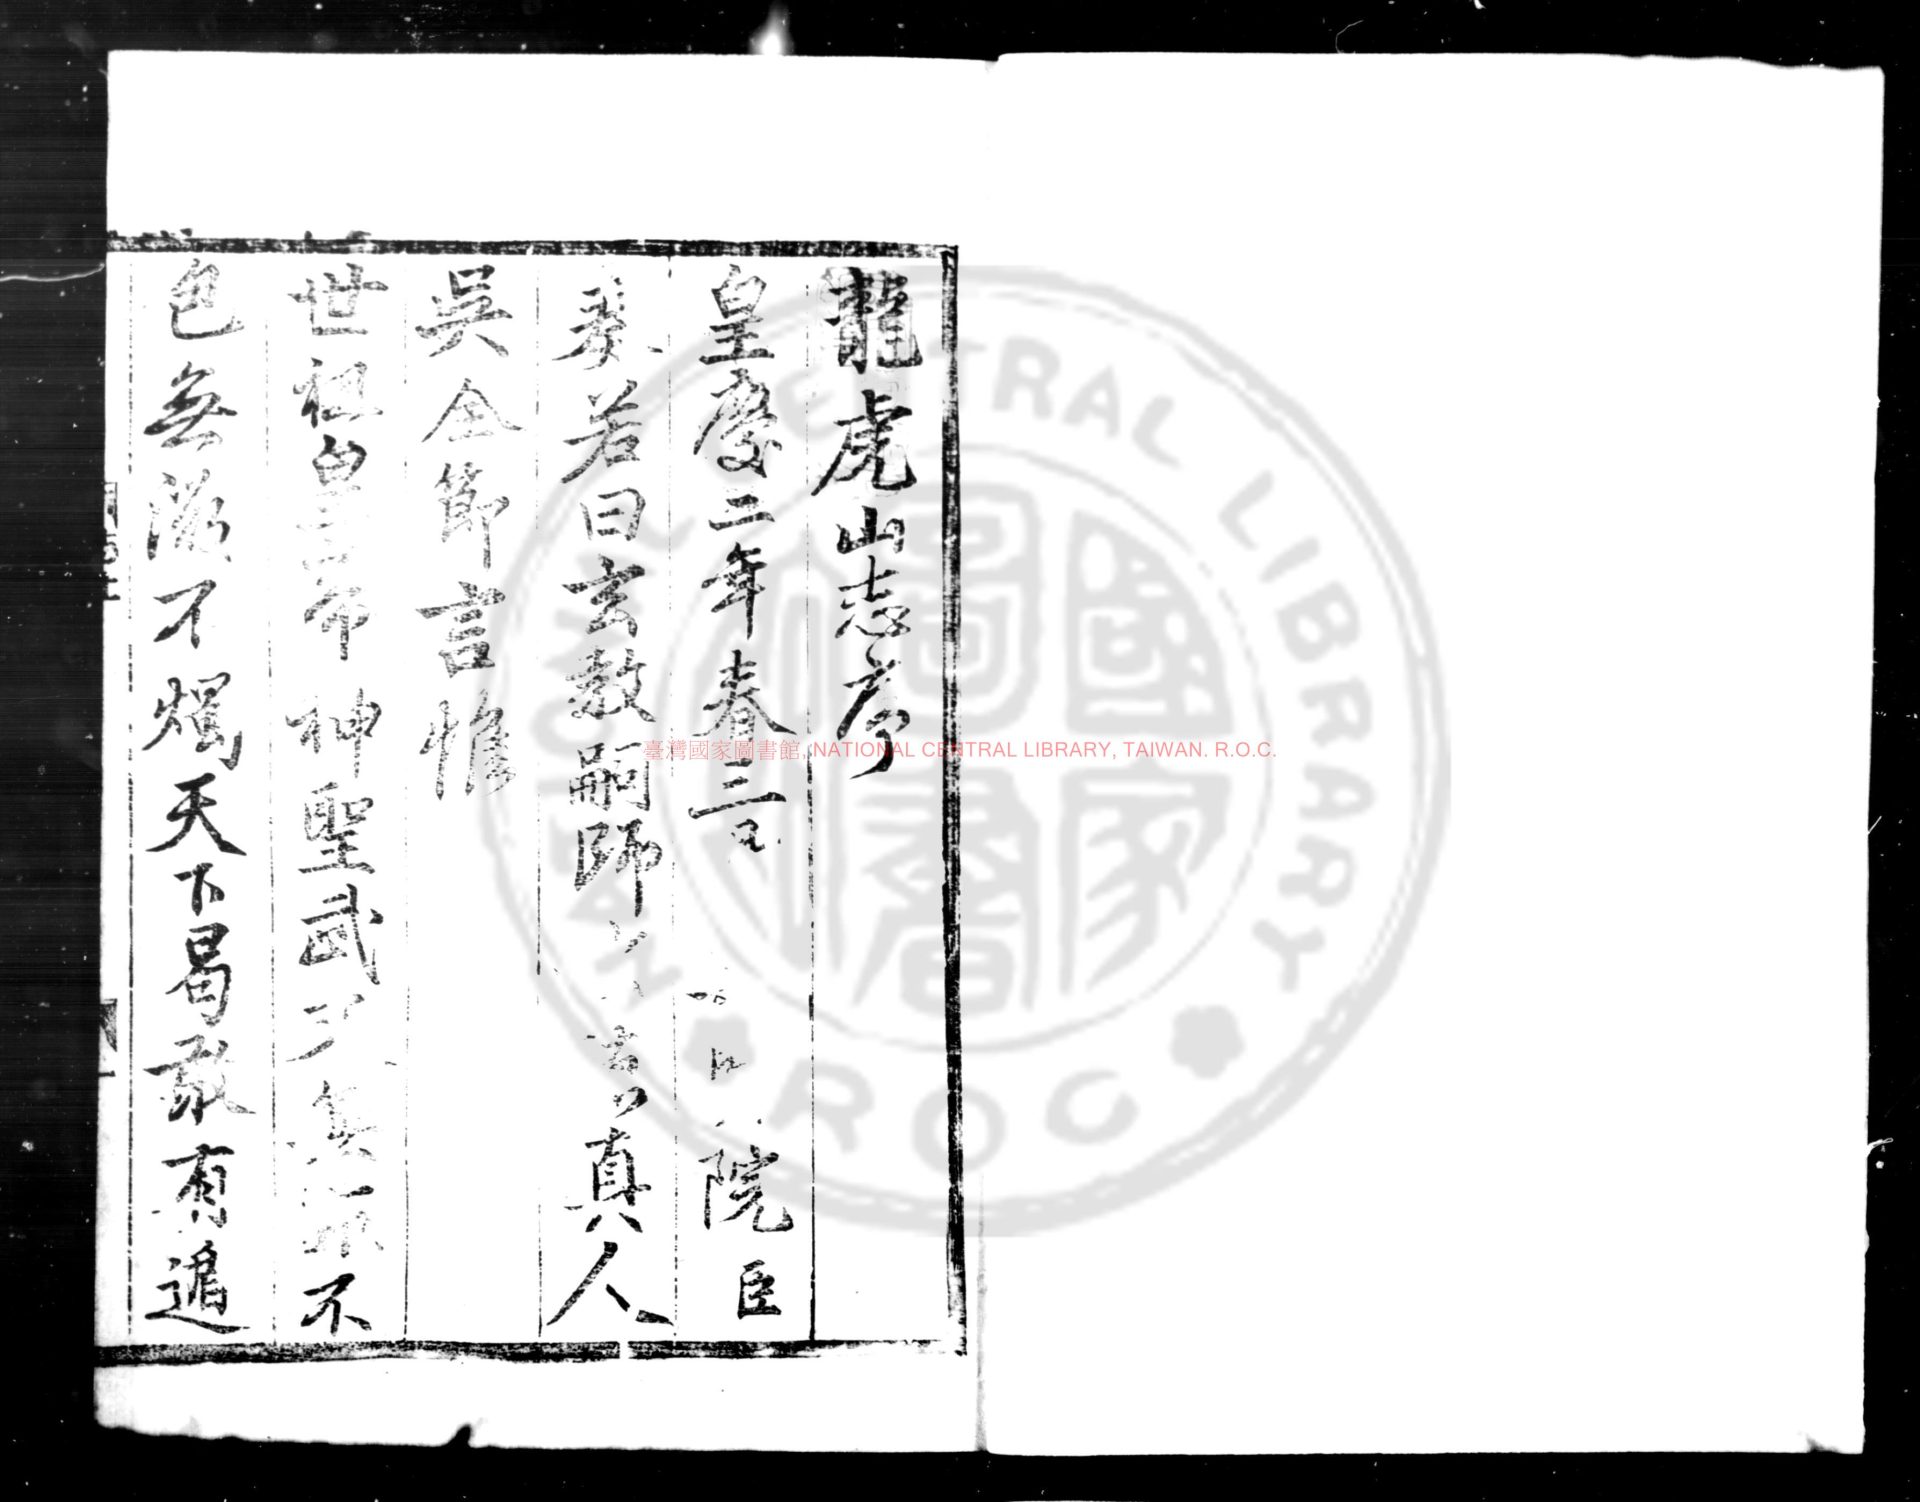 龍虎山志序
皇慶二年春三月 院臣
奉若曰玄教嗣師 真人
吳全節言惟
世祖皇帝神聖武 不
包無微不燭天下曷敢有遁
臺灣國家圖書館, NATIONAL CENTRAL LIBRARY, TAIWAN. R.O.C.
NATIONAL CENTRAL LIBRARY
ROC
國家圖書